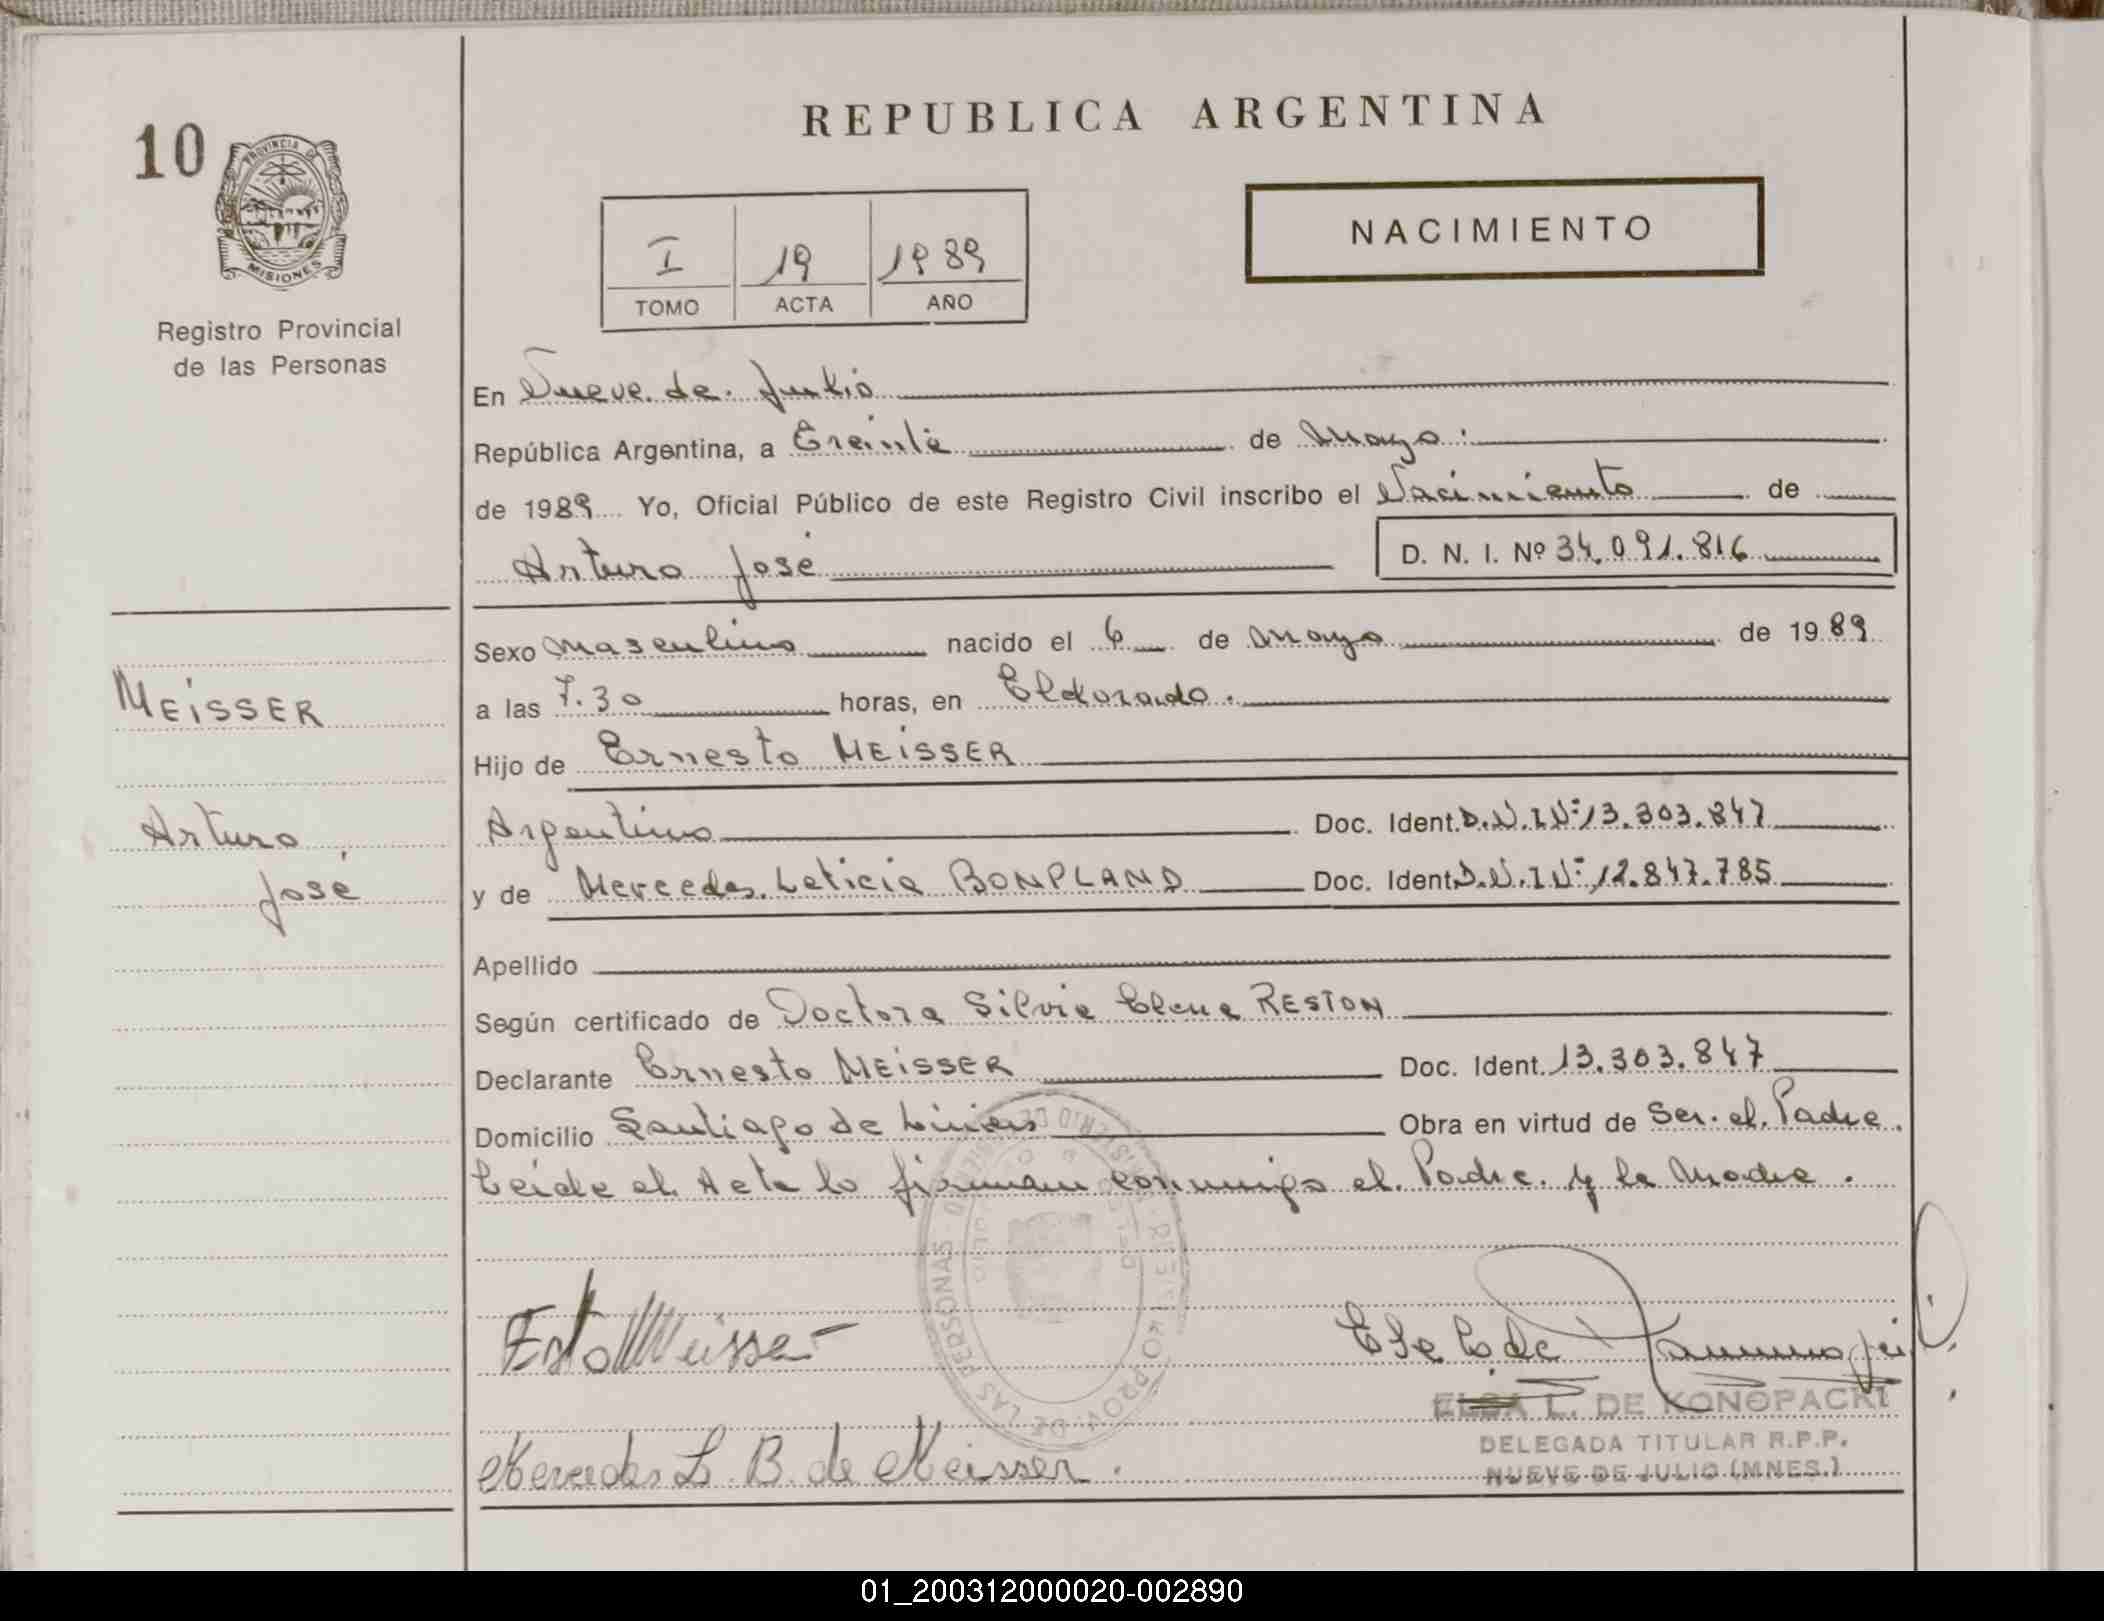 REPUBLICA ARGENTINA
10
PROVINCIA DE
MISIONES
Registro Provincial
de las Personas
I 19 1989
TOMO ACTA AÑO
NACIMIENTO
En Nueve de Julio
República Argentina, a Treinta de Mayo
de 1989 Yo, Oficial Público de este Registro Civil inscribo el Nacimiento de
Arturo José D. N. I. Nº 34.091.816
Sexo masculino nacido el 6 de Mayo de 1989
MEISSER
a las 7.30 horas, en Eldorado.
Hijo de Ernesto MEISSER
Arturo
José
Argentino Doc. Ident. D.N.I Nº 13.303.847
y de Mercedes Leticia BONPLAND Doc. Ident. D.N.I Nº 12.847.785
Apellido
Según certificado de Doctora Silvia Elena RESTON
Declarante Ernesto MEISSER Doc. Ident. 13.303.847
Domicilio Santiago de Liniers Obra en virtud de Ser el Padre.
Leida el Acta lo firman conmigo el Padre y la Madre.
Esto Meisser
ELSA L. DE KONOPACKI
DELEGADA TITULAR R.P.P.
NUEVE DE JULIO (MNES.)
Mercedes L. B. de Meisser.
01_200312000020-002890